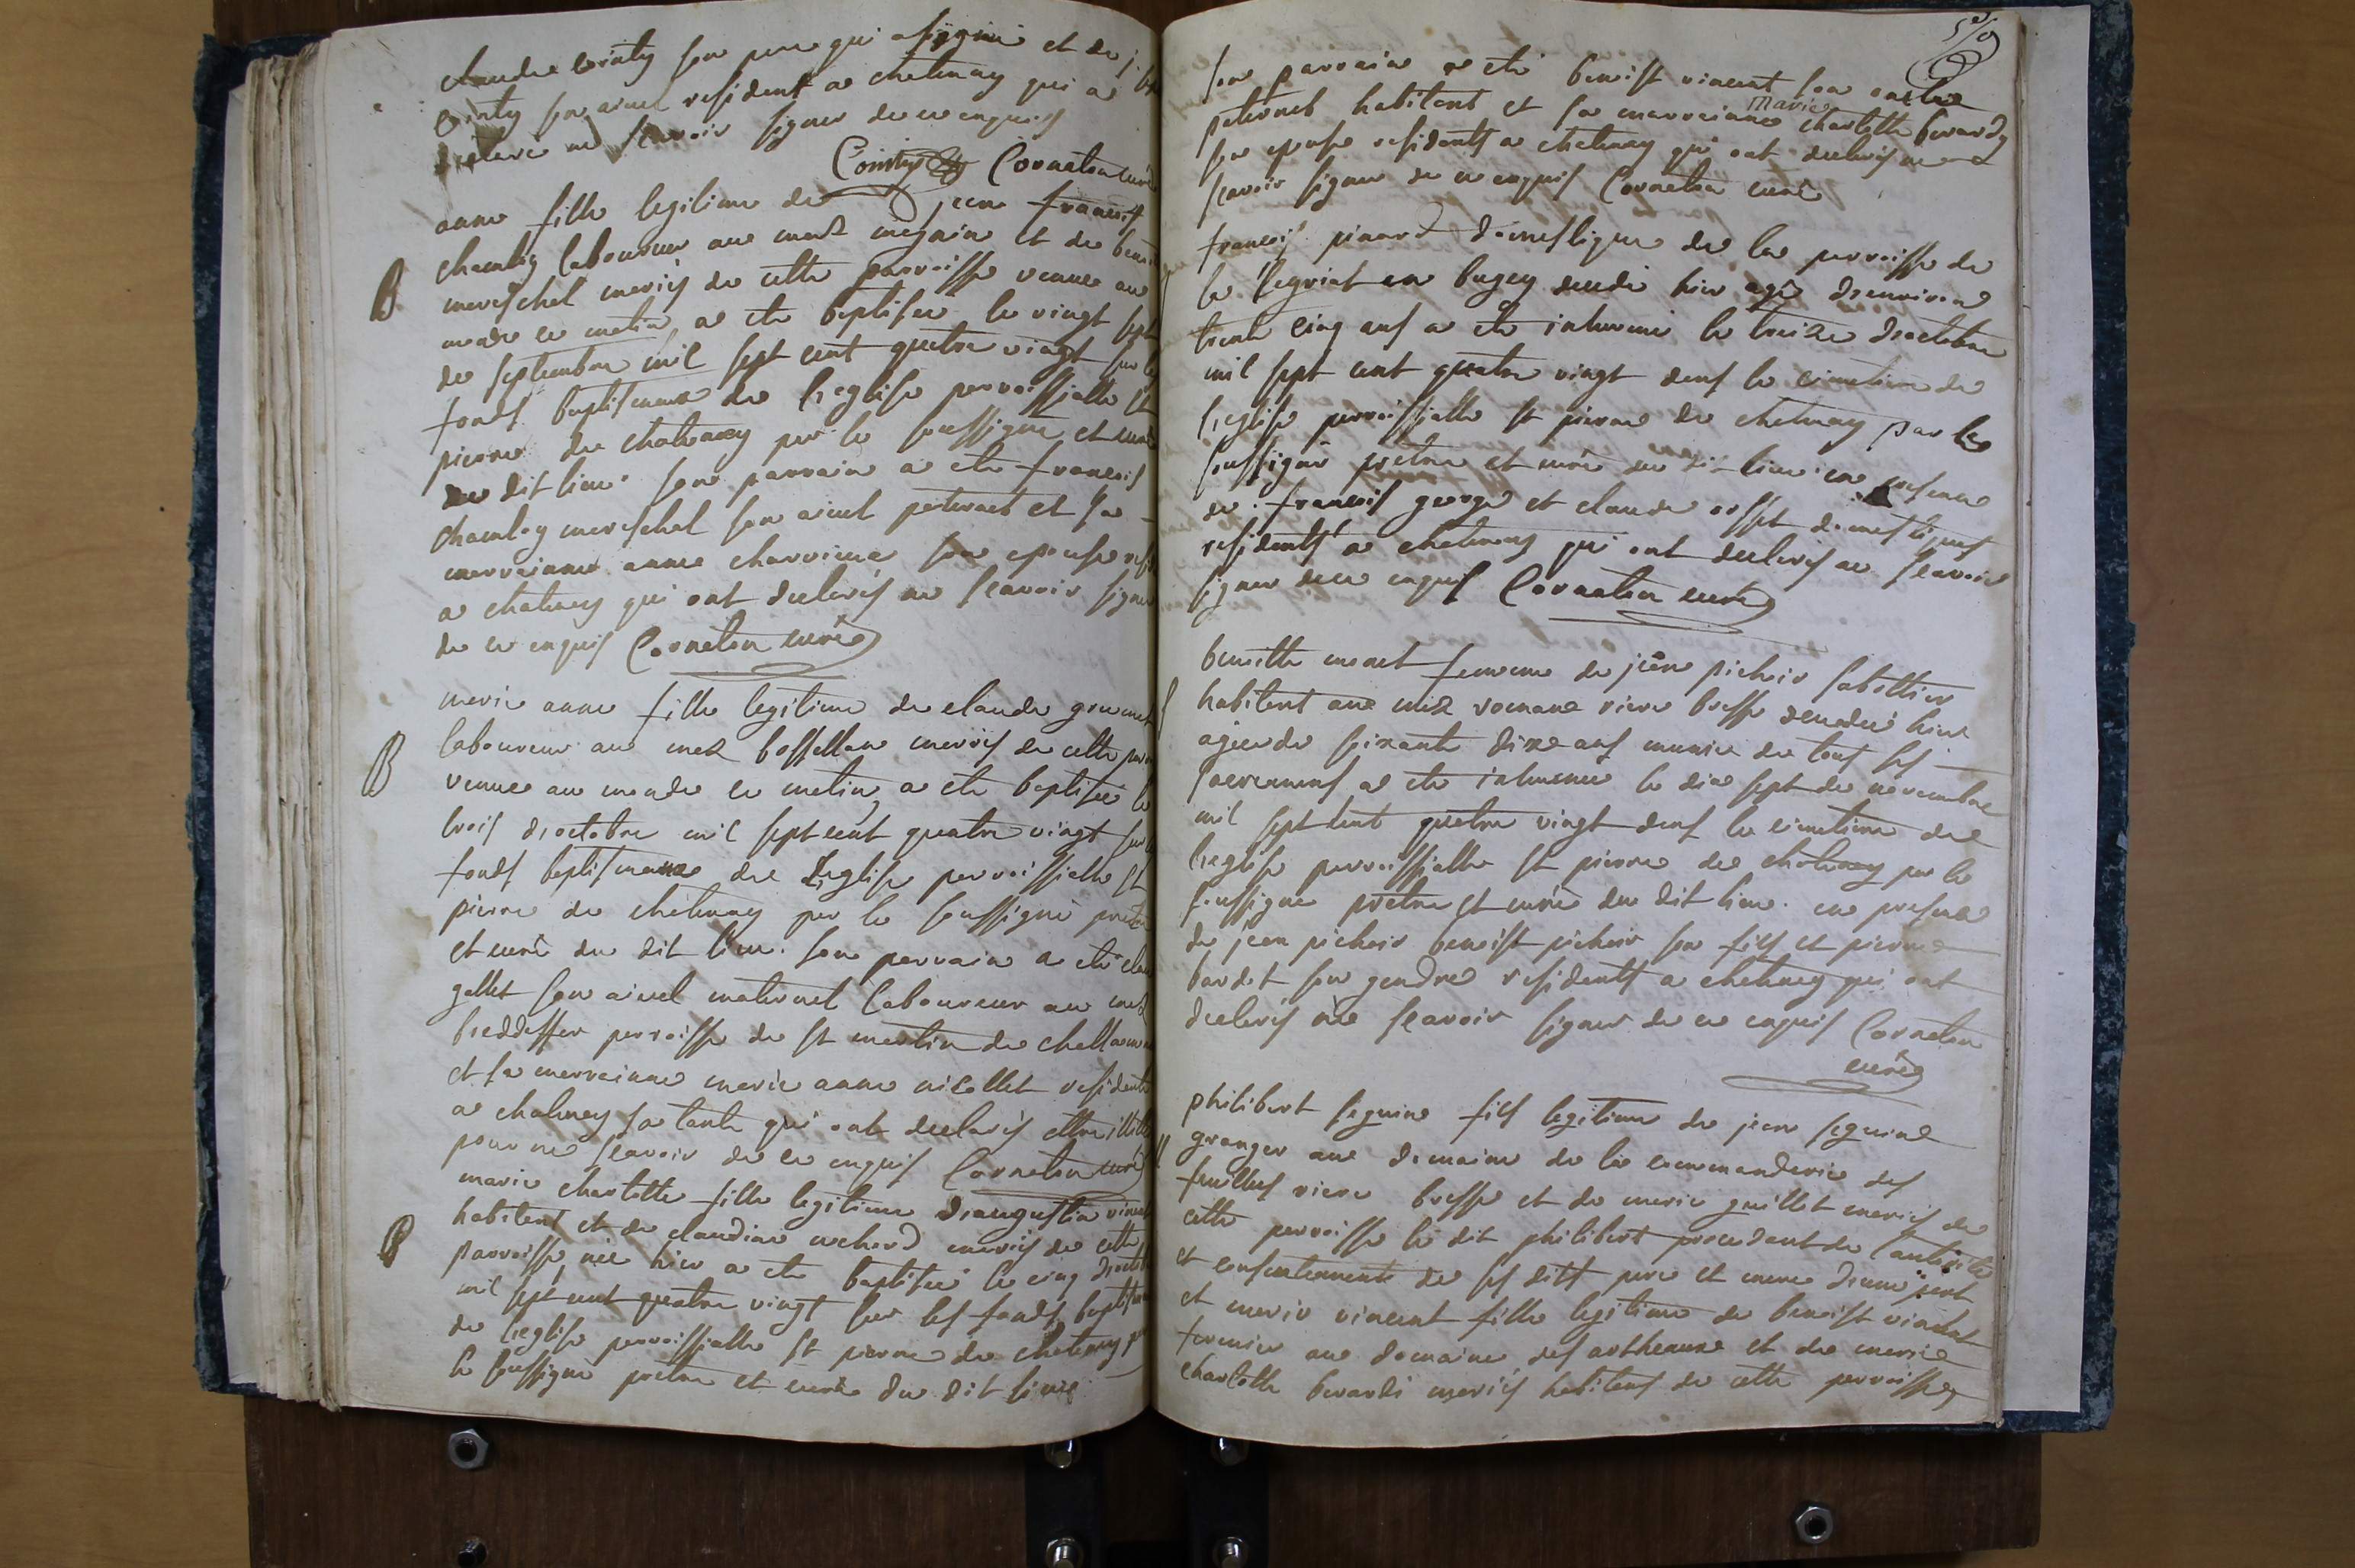 claudre cointy son pere qui a signé et de j.
cointy son aieul resident a chatenay qui a
declaré ne scavoir signer de ce enquis
Cointy Cornaton curé
anne fille legitime de jean francois
chambry laboureur au maz et de
mereschel mariés de cette parroisse venue au
monde ce matin a ete baptisee le vingt sept
de septembre mil sept cent quatre vingt sur les
fonds baptismaux de l'eglise parroissialle st
pierre de chatenay par le soussigné et curé
du dit lieu. son parrain a ete francois
mereschel son aieul paternel et sa
marrainne anne charvieux son epouse
a chatenay qui ont declarés ne scavoir signer
de ce enquis Cornaton curé
B
marie anne fille legitime de claude
laboureur au maz bossellan mariés de cette
venue au monde ce matin a ete baptisée le
trois d'octobre mil sept cent quatre vingt sur les
fonds baptismaux de l'eglise parroissialle st
pierre de chatenay par le soussigné pretre
et curé du dit lieu. son parrain a ete
gallet son aieul maternel laboureur au maz
parroisse de st martin de challamont
et sa marrainne marie anne nicollet residente
a chatenay sa tante qui ont declarés
pour ne scavoir de ce enquis Cornaton curé
B
marie charlotte fille legitime d'augustin vincent
habitent et de claudine mariés de cette
parroisse née hier a ete baptisée le cinq d'octobre
mil sept cent quatre vingt sur les fonds baptismaux
de l'eglise parroissialle st pierre de chatenay par
le soussigné pretre et curé du dit lieu
B
son parrain a eté benoist vincent son oncle
paternel habitent et sa marrainne marie charlotte berardy
son epouse residents a chatenay qui ont declarés ne
scavoir signer de ce enquis Cornaton curé
francois pinard domestique de la parroisse de
la en bugey decedé hier agé d'environ
trente cinq ans a eté inhumé le treize d'octobre
mil sept cent quatre vingt dans le cimetiere de
l'eglise parroissialle st pierre de chatenay par le
soussigné pretre et curé du dit lieu en presence
de francois george et claude domestiques
residents a chatenay qui ont declarés ne scavoir
signer de ce enquis Cornaton curé
benoitte monet femme de jean pichoir sabottier
habitent au maz romane riere bresse decedée hier
agée de soixante dixe ans munie de tous ses
sacremens a ete inhumée le dix sept de novembre
mil sept cent quatre vingt dans le cimetiere de
l'eglise parroissialle st pierre de chatenay par le
soussigné pretre et curé du dit lieu. en presence
de jean pichoir benoist pichoir son fils et pierre
bardet son gendre residents a chatenay qui ont
declarés ne scavoir signer de ce enquis Cornaton
curé
philibert seguin fils legitime de jean seguin
granger au domaine de la commanderie des
feuillées riere bresse et de marie guillot mariés de
cette parroisse le dit philibert procedant de l'autorité
et consentement de ses dits pere et mere d'une part
et marie vincent fille legitime de benoist vincent
fermier au domaine des et de marie
charlotte berardi mariés habitens de cette parroisse